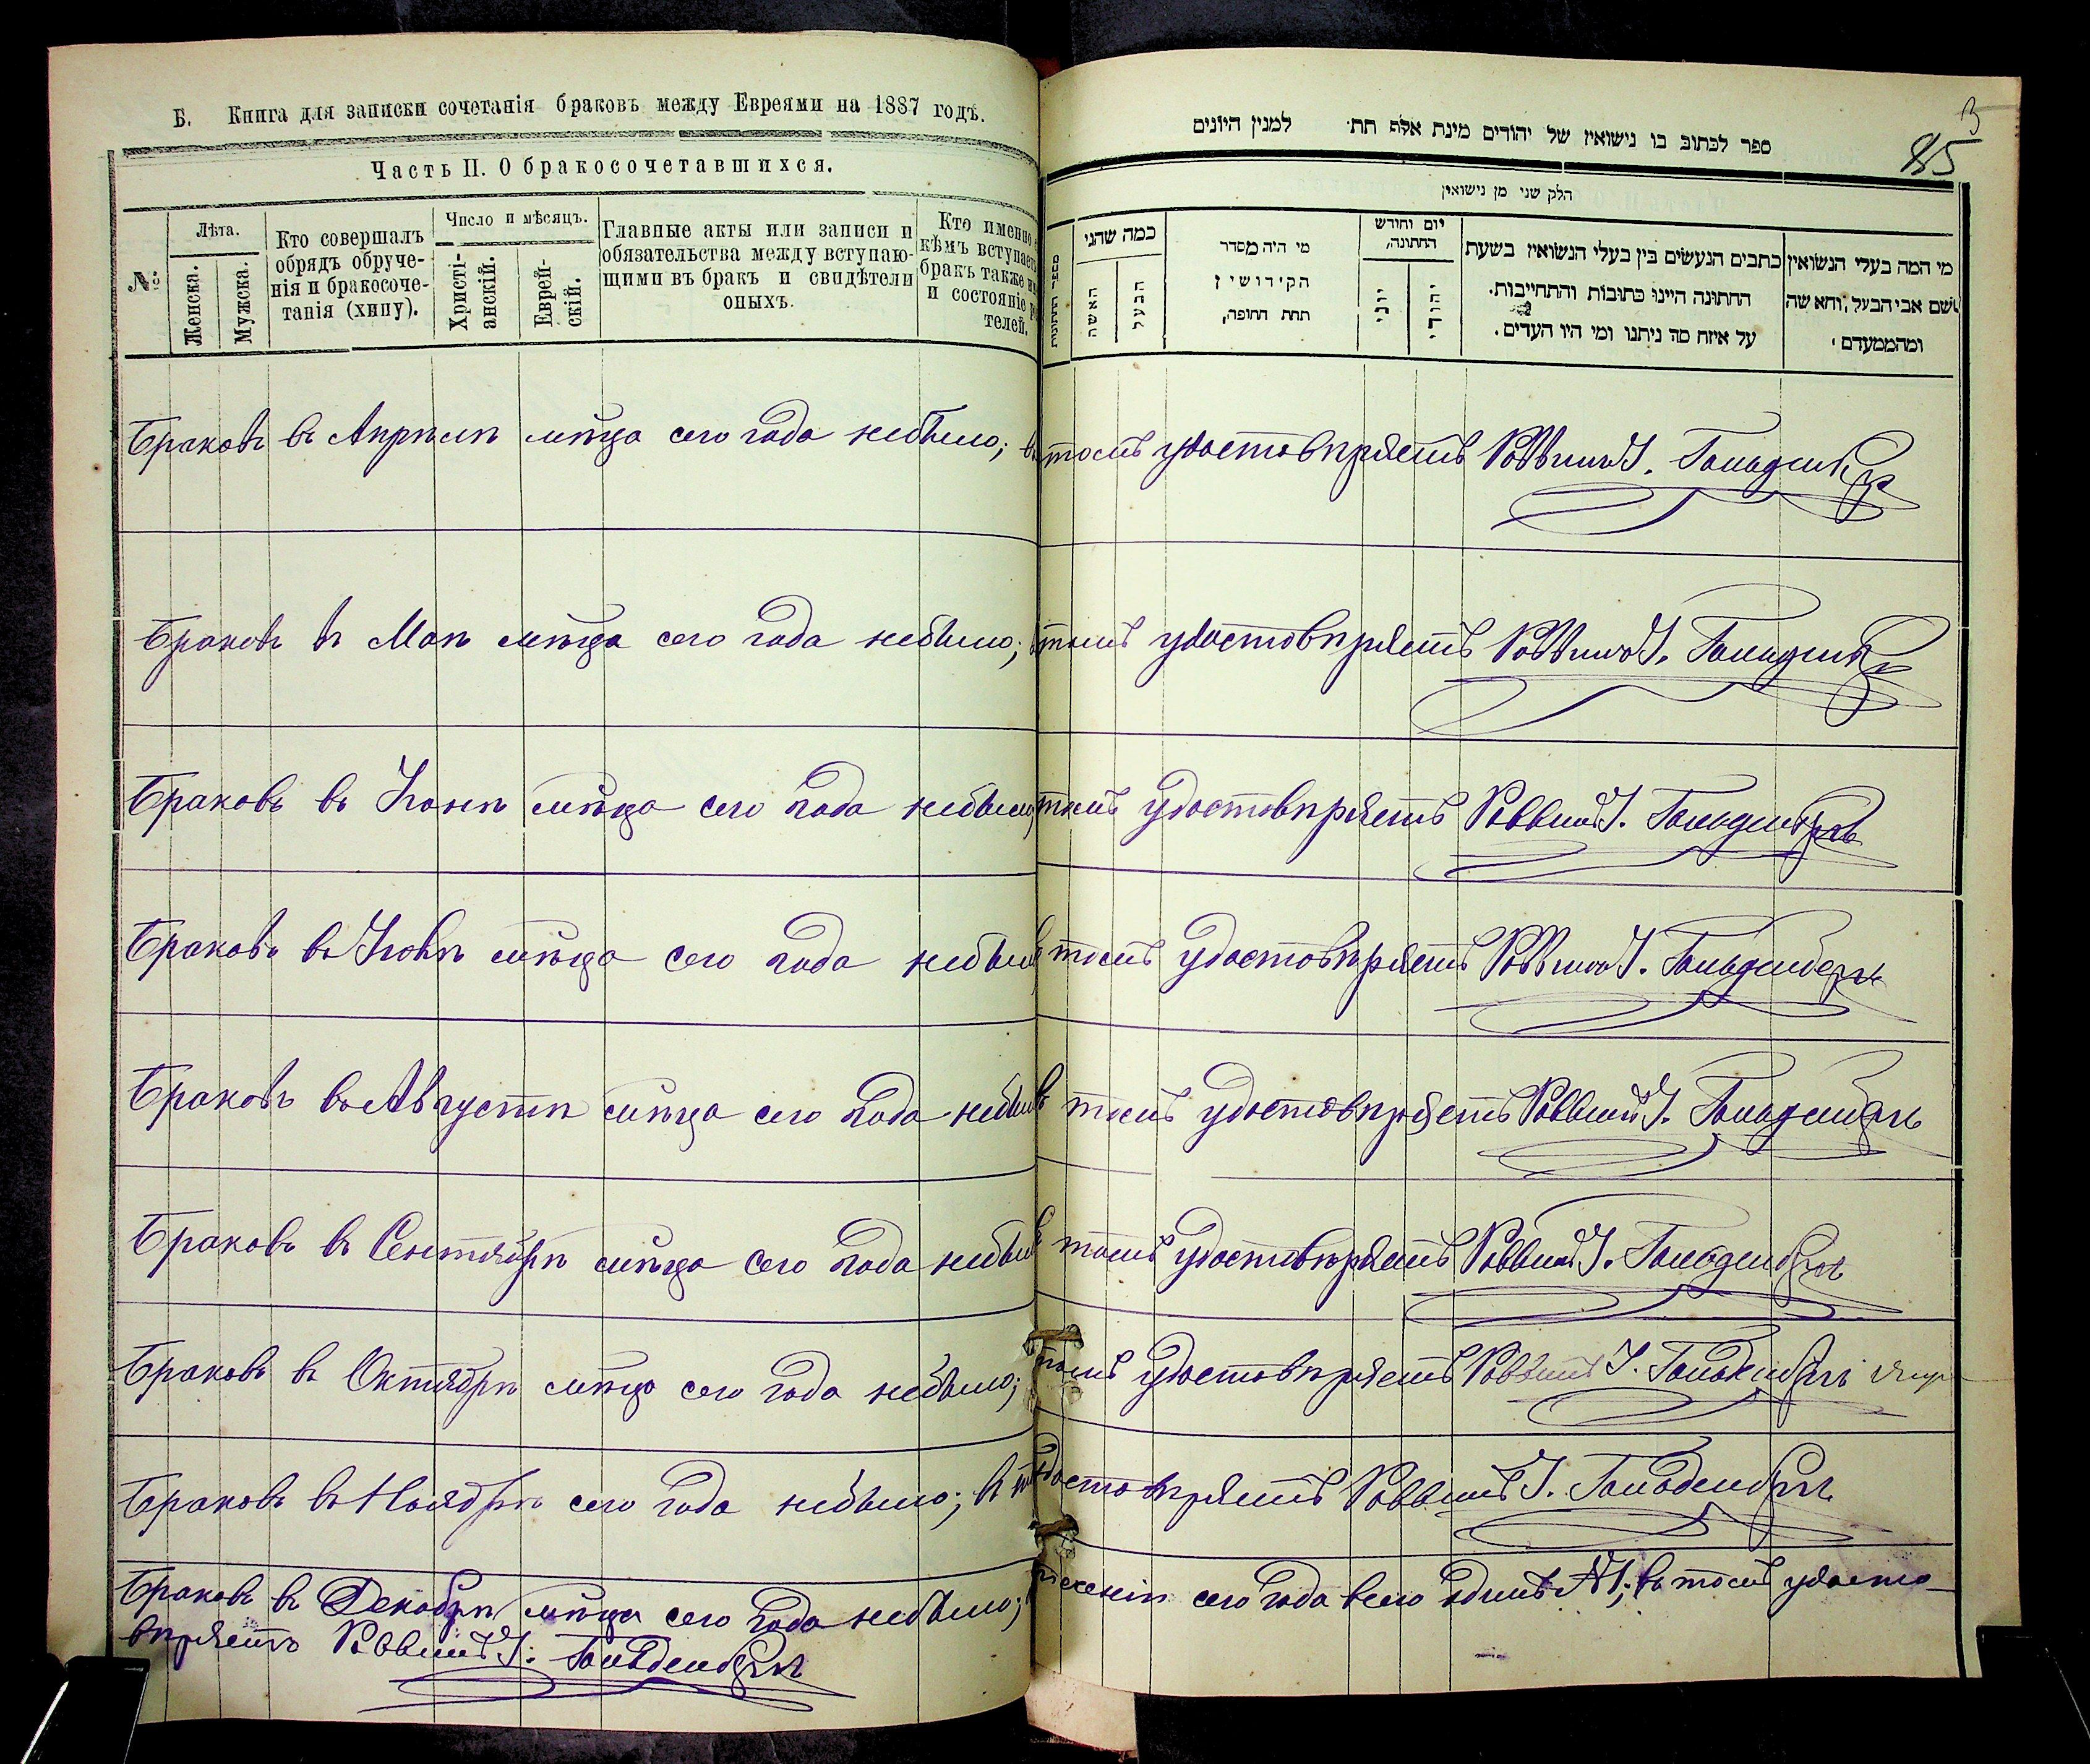 Б. Книга для записки сочетанія браковъ между Евреями на 1887 годъ.
Часть II. О бракосочетавшихся.
№
Лѣта.
Женска.
Мужска.
Кто совершалъ
обрядъ обруче-
нія и бракосоче-
танія (хипу).
Число и мѣсяцъ.
Христі-
анскій.
Еврей-
скій.
Главные акты или записи и
обязательства между вступаю-
щими въ бракъ и свидѣтели
оныхъ.
Кто именно
кѣмъ вступаетъ
бракъ также
и состояніе
телей.
3
85
ספר לכתוב בו נישואין של יהודים מינת אלף תת׳ למנין היונים
חלק שני מן נישואין
מספר החתונות
כמה שהני
האשה
הבעל
מי היה מסדר
הקידושין
תחת החופה,
יום וחודש
החתונה,
יוני
יהודי
כתבים הנעשים בין בעלי הנשואין בשעת
החתונה היינו כתובות והתחייבות.
על איזה סה ניתנו ומי היו העדים.
מי המה בעלי הנשואין
ושם אבי הבעל, והאשה
ומהממעדם
Браковъ въ Апрѣлѣ мѣцѣ сего года небыло; въ томъ удостовѣряетъ Раввинъ І. Гольденбергъ
Браковъ въ Маѣ мѣцѣ сего года небыло; въ томъ удостовѣряетъ Раввинъ І. Гольденбергъ
Браковъ въ Іюнѣ мѣцѣ сего года небыло; томъ удостовѣряетъ Раввинъ І. Гольденбергъ
Браковъ въ Іюлѣ мѣцѣ сего года небыло въ томъ удостовѣряетъ Раввинъ І. Гольденбергъ
Браковъ въ Августѣ мѣцѣ сего года небыло въ томъ удостовѣряетъ Раввинъ І. Гольденбергъ
Браковъ въ Сентябрѣ мѣцѣ сего года небыло въ томъ удостовѣряетъ Раввинъ І. Гольденбергъ
Браковъ въ Октябрѣ мѣцѣ сего года небыло; томъ удостовѣряетъ Раввинъ І. Гольденбергъ
Браковъ въ Ноябрѣ сего года небыло; въ томъ удостовѣряетъ Раввинъ І. Гольденбергъ
Браковъ въ Декабрѣ мѣцѣ сего года небыло; теченіи сего года всего одинъ №1; въ томъ удосто-
вѣряетъ Раввинъ І. Гольденбергъ